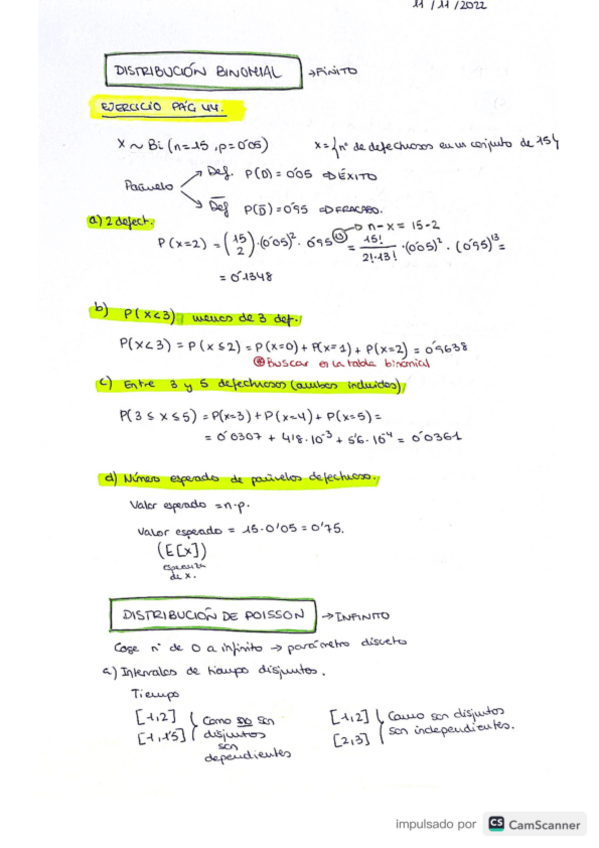 11/11/2022
DISTRIBUCIÓN BINOMIAL → FINITO
EJERCICIO PÁG 44.
X ~ Bi (n=15, p=0'05) X = {nº de defectuosos en un conjunto de 15}
Def. P(D) = 0'05 ⇒ ÉXITO
Pañuelo
Def P(D̄) = 0'95 ⇒ FRACASO.
a) 2 defect.
→ n-x = 15-2
P(x=2) = (15 2) · (0'05)² · 0'95¹³ = 15! / 2!·13! · (0'05)² · (0'95)¹³ =
= 0'1348
b) P(x<3) menos de 3 def.
P(x<3) = P(x≤2) = P(x=0) + P(x=1) + P(x=2) = 0'9638
* Buscar en la tabla binomial
c) Entre 3 y 5 defectuosos (ambos incluidos)
P(3≤x≤5) = P(x=3) + P(x=4) + P(x=5) =
= 0'0307 + 4'8·10⁻³ + 5'6·10⁻⁴ = 0'0361
d) Número esperado de pañuelos defectuoso.
Valor esperado = n·p.
Valor esperado = 15·0'05 = 0'75.
(E[x])
esperanza
de x.
DISTRIBUCIÓN DE POISSON → INFINITO
Coge nº de 0 a infinito → parámetro discreto
a) Intervalos de tiempo disjuntos.
Tiempo
[1,2] Como no son [1,2] Como son disjuntos
[1,1'5] disjuntos [2,3] son independientes.
son
dependientes
impulsado por CS CamScanner